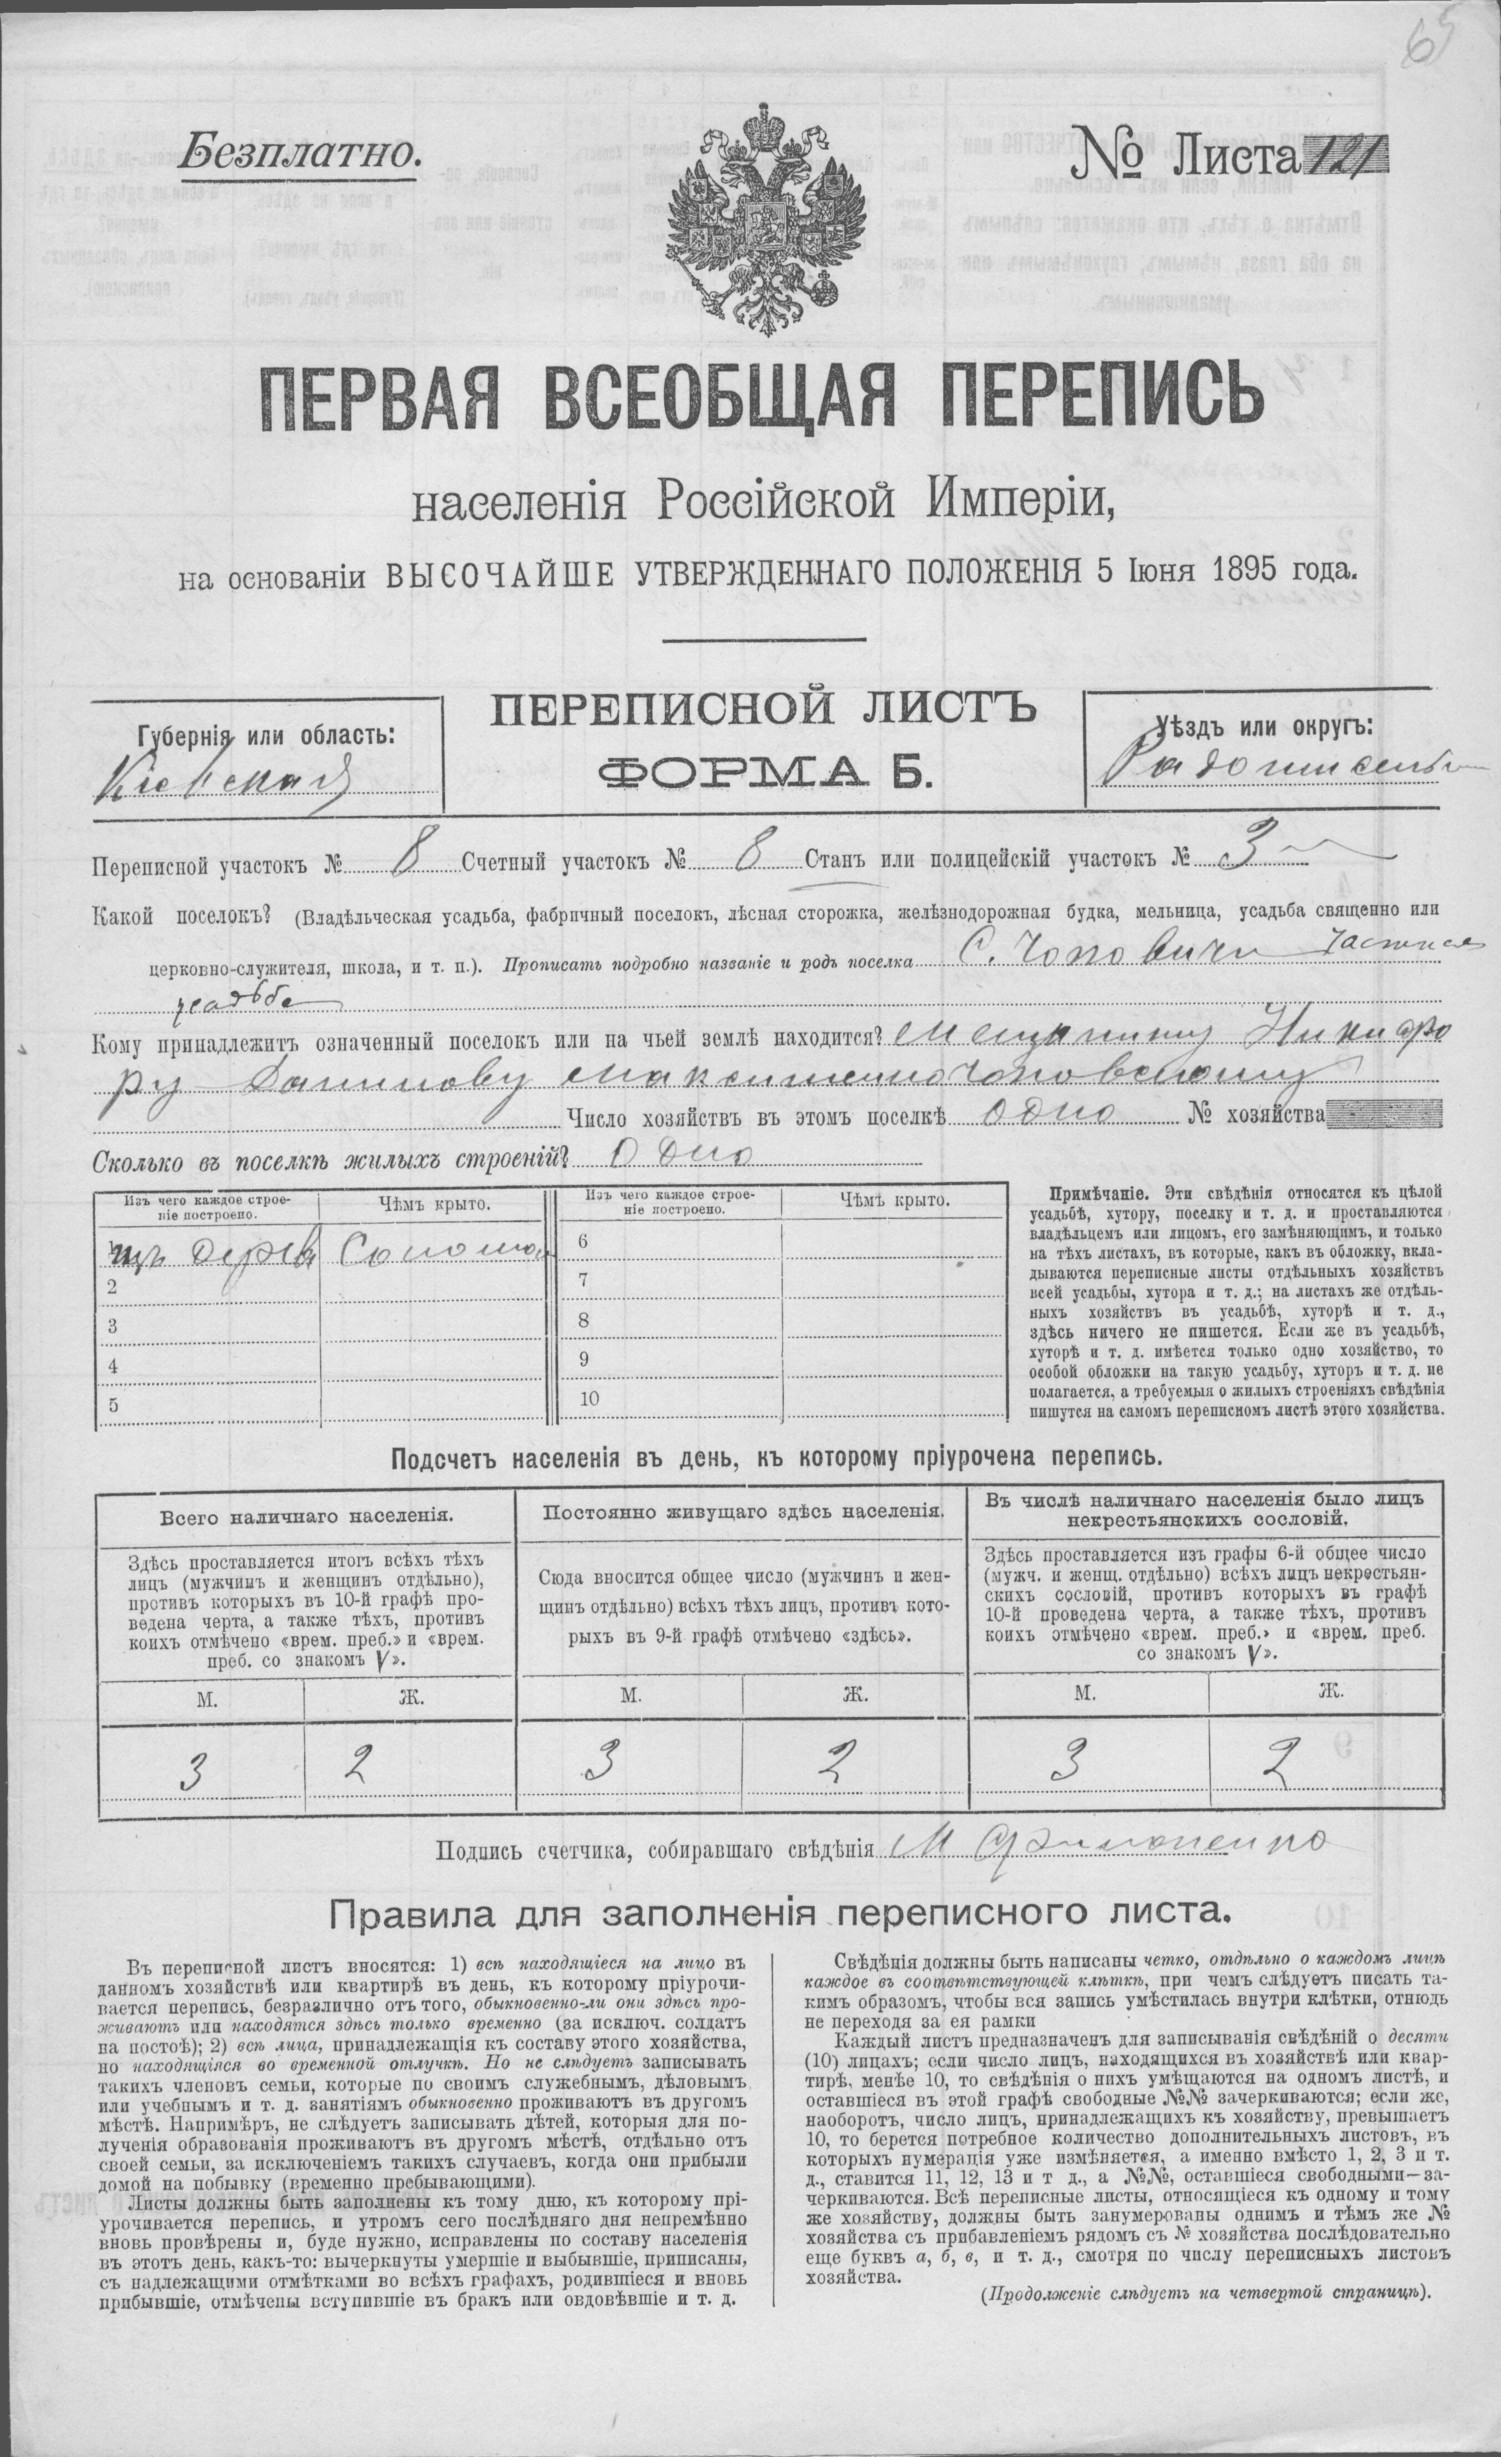 65
Безплатно.
№ Листа 121
ПЕРВАЯ ВСЕОБЩАЯ ПЕРЕПИСЬ
населенія Россійской Имперіи,
на основаніи ВЫСОЧАЙШЕ УТВЕРЖДЕННАГО ПОЛОЖЕНІЯ 5 Іюня 1895 года.
ПЕРЕПИСНОЙ ЛИСТЪ
ФОРМА Б.
Губернія или область:
Кіевская
Уѣздъ или округъ:
Радомысльск
Переписной участокъ № 8 Счетный участокъ № 8 Станъ или полицейскій участокъ № 3
Какой поселокъ? (Владѣльческая усадьба, фабричный поселокъ, лѣсная сторожка, желѣзнодорожная будка, мельница, усадьба священно или
церковно-служителя, школа, и т. п.). Прописать подробно названіе и родъ поселка С. Чоповичи частная
усадьба
Кому принадлежитъ означенный поселокъ или на чьей землѣ находится? мещанину Никифо
ру Данилову Максименко Чоповскому
Число хозяйствъ въ этомъ поселкѣ одно № хозяйства
Сколько въ поселкѣ жилыхъ строеній? Одно
Изъ чего каждое строе-
ніе построено.
Чѣмъ крыто.
Изъ чего каждое строе-
ніе построено.
Чѣмъ крыто.
1 изъ дерева Соломой 6
2 7
3 8
4 9
5 10
Примѣчаніе. Эти свѣдѣнія относятся къ цѣлой
усадьбѣ, хутору, поселку и т. д. и проставляются
владѣльцемъ или лицомъ, его замѣняющимъ, и только
на тѣхъ листахъ, въ которые, какъ въ обложку, вкла-
дываются переписные листы отдѣльныхъ хозяйствъ
всей усадьбы, хутора и т. д.; на листахъ же отдѣль-
ныхъ хозяйствъ въ усадьбѣ, хуторѣ и т. д.,
здѣсь ничего не пишется. Если же въ усадьбѣ,
хуторѣ и т. д. имѣется только одно хозяйство, то
особой обложки на такую усадьбу, хуторъ и т. д. не
полагается, а требуемыя о жилыхъ строеніяхъ свѣдѣнія
пишутся на самомъ переписномъ листѣ этого хозяйства.
Подсчетъ населенія въ день, къ которому пріурочена перепись.
Всего наличнаго населенія.
Здѣсь проставляется итогъ всѣхъ тѣхъ
лицъ (мужчинъ и женщинъ отдѣльно),
противъ которыхъ въ 10-й графѣ про-
ведена черта, а также тѣхъ, противъ
коихъ отмѣчено «врем. преб.» и «врем.
преб. со знакомъ V».
Постоянно живущаго здѣсь населенія.
Сюда вносится общее число (мужчинъ и жен-
щинъ отдѣльно) всѣхъ тѣхъ лицъ, противъ кото-
рыхъ въ 9-й графѣ отмѣчено «здѣсь».
Въ числѣ наличнаго населенія было лицъ
некрестьянскихъ сословій.
Здѣсь проставляется изъ графы 6-й общее число
(мужч. и женщ. отдѣльно) всѣхъ лицъ некрестьян-
скихъ сословій, противъ которыхъ въ графѣ
10-й проведена черта, а также тѣхъ, противъ
коихъ отмѣчено «врем. преб.» и «врем. преб.
со знакомъ V».
М. Ж. М. Ж. М. Ж.
3 2 3 2 3 2
Подпись счетчика, собиравшаго свѣдѣнія М Филоненко
Правила для заполненія переписного листа.
Въ переписной листъ вносятся: 1) всѣ находящіеся на лицо въ
данномъ хозяйствѣ или квартирѣ въ день, къ которому пріурочи-
вается перепись, безразлично отъ того, обыкновенно-ли они здѣсь про-
живаютъ или находятся здѣсь только временно (за исключ. солдатъ
на постоѣ); 2) всѣ лица, принадлежащія къ составу этого хозяйства,
но находящіяся во временной отлучкѣ. Но не слѣдуетъ записывать
такихъ членовъ семьи, которые по своимъ служебнымъ, дѣловымъ
или учебнымъ и т. д. занятіямъ обыкновенно проживаютъ въ другомъ
мѣстѣ. Напримѣръ, не слѣдуетъ записывать дѣтей, которыя для по-
лученія образованія проживаютъ въ другомъ мѣстѣ, отдѣльно отъ
своей семьи, за исключеніемъ такихъ случаевъ, когда они прибыли
домой на побывку (временно пребывающими).
Листы должны быть заполнены къ тому дню, къ которому прі-
урочивается перепись, и утромъ сего послѣдняго дня непремѣнно
вновь провѣрены и, буде нужно, исправлены по составу населенія
въ этотъ день, какъ-то: вычеркнуты умершіе и выбывшіе, приписаны,
съ надлежащими отмѣтками во всѣхъ графахъ, родившіеся и вновь
прибывшіе, отмѣчены вступившіе въ бракъ или овдовѣвшіе и т. д.
Свѣдѣнія должны быть написаны четко, отдѣльно о каждомъ лицѣ
каждое въ соотвѣтствующей клѣткѣ, при чемъ слѣдуетъ писать та-
кимъ образомъ, чтобы вся запись умѣстилась внутри клѣтки, отнюдь
не переходя за ея рамки
Каждый листъ предназначенъ для записыванія свѣдѣній о десяти
(10) лицахъ; если число лицъ, находящихся въ хозяйствѣ или квар-
тирѣ, менѣе 10, то свѣдѣнія о нихъ умѣщаются на одномъ листѣ, и
оставшіеся въ этой графѣ свободные №№ зачеркиваются; если же,
наоборотъ, число лицъ, принадлежащихъ къ хозяйству, превышаетъ
10, то берется потребное количество дополнительныхъ листовъ, въ
которыхъ нумерація уже измѣняется, а именно вмѣсто 1, 2, 3 и т.
д., ставится 11, 12, 13 и т д., а №№, оставшіеся свободными—за-
черкиваются. Всѣ переписные листы, относящіеся къ одному и тому
же хозяйству, должны быть занумерованы однимъ и тѣмъ же №
хозяйства съ прибавленіемъ рядомъ съ № хозяйства послѣдовательно
еще буквъ а, б, в, и т. д., смотря по числу переписныхъ листовъ
хозяйства.
(Продолженіе слѣдуетъ на четвертой страницѣ).